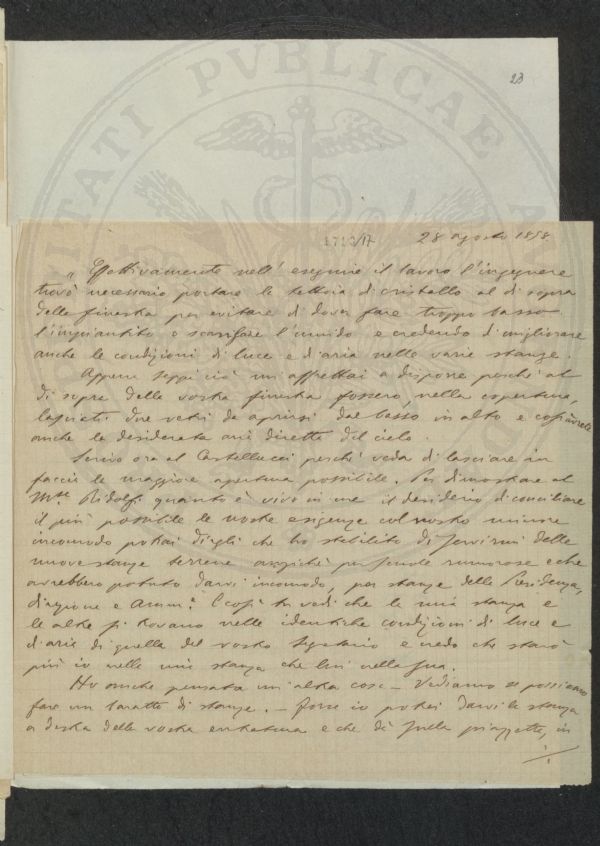 23
1713/17
28 agosto 1898.
„ Effettivamente nell' eseguire il lavoro l'ingegnere
trovò necessario portare la tettoia di cristallo al di sopra
della finestra per evitare di dover fare troppo basso
l'impiantito o scansare l'umido e credendo di migliorare
anche le condizioni di luce e d'aria nelle varie stanze.
Appena seppi ciò mi affrettai a disporre perché al
di sopra della vostra finestra fossero, nella copertura,
lasciati due vetri da aprirsi dal basso in alto e così avrete
anche la desiderata aria diretta del cielo.
Scrivo ora al Castellucci perché veda di lasciare in
faccia la maggiore apertura possibile. Per dimostrare al
M.se Ridolfi quanto è vivo in me il desiderio di conciliare
il più possibile le vostre esigenze col vostro minore
incomodo potrai dirgli che ho stabilito di servirmi delle
nuove stanze terrene anziché per scuole rumorose e che
avrebbero potuto darvi incomodo, per stanze della Presidenza,
direzione e Amm.e E così tu vedi che la mia stanza e
le altre si trovano nelle identiche condizioni di luce e
d'aria di quella del vostro Segretario e credo che starò
più io nella mia stanza che lui nella sua.
Ho anche pensata un'altra cosa — Vediamo se possiamo
fare un baratto di stanze. — Forse io potrei darvi la stanza
a destra della vostra entratura e che dà sulla piazzetta, in
PVBLICAE